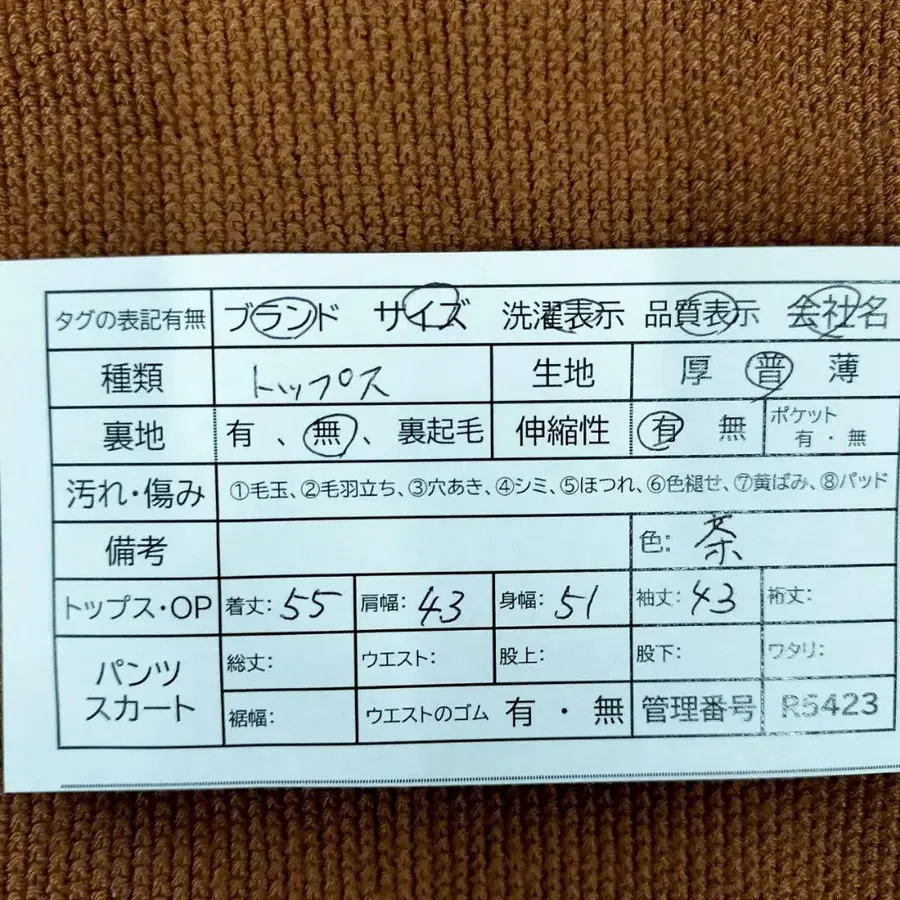 タグの表記有無 ブランド サイズ 洗濯表示 品質表示 会社名
種類 トップス 生地 厚 普 薄
裏地 有 、無 、裏起毛 伸縮性 有 無 ポケット 有・無
汚れ・傷み ①毛玉、②毛羽立ち、③穴あき、④シミ、⑤ほつれ、⑥色褪せ、⑦黄ばみ、⑧パッド
備考 色: 茶
トップス・OP 着丈: 55 肩幅: 43 身幅: 51 袖丈: 43 裄丈:
パンツ スカート 総丈: ウエスト: 股上: 股下: ワタリ:
裾幅: ウエストのゴム 有・無 管理番号 R5423